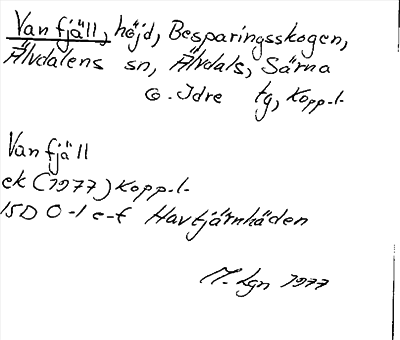 Vanfjäll, höjd, Besparingsskogen,
Älvdalens sn, Älvdals, Särna
o. Idre tg, Kopp.l.
Vanfjäll
ek (1977) Kopp.l.
15D 0-1 e-f Havtjärnhäden
M. Lgn 1977